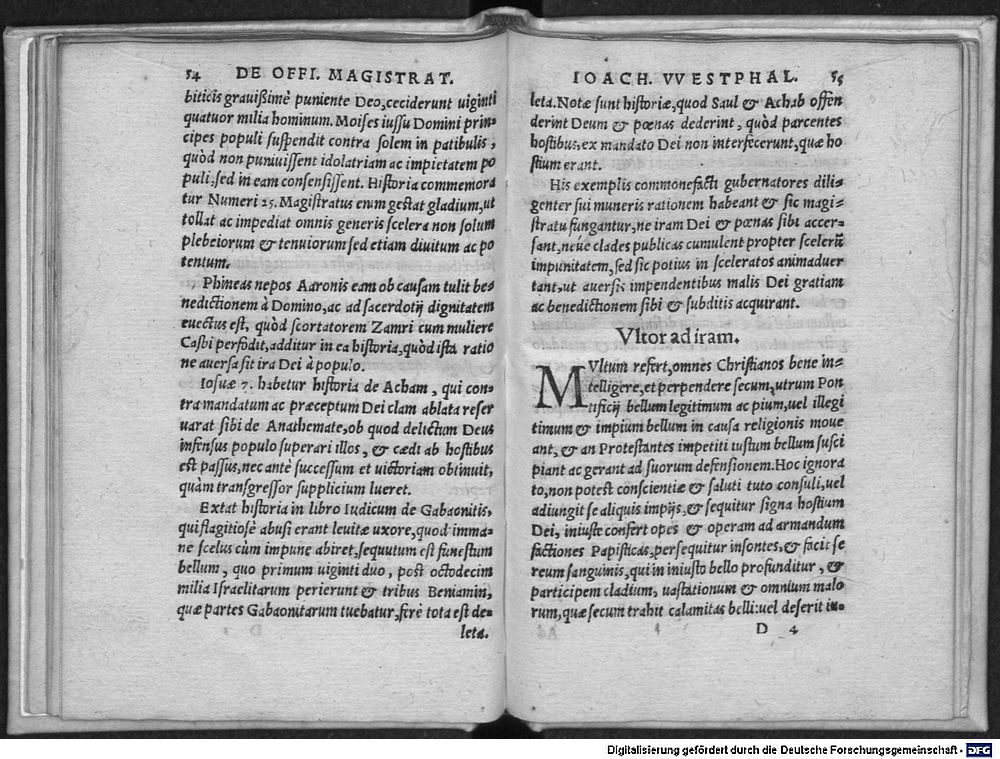 54 DE OFFI. MAGISTRAT.
biticis grauißimè puniente Deo, ceciderunt uiginti
quatuor milia hominum. Moises iussu Domini prin-
cipes populi suspendit contra solem in patibulis,
quòd non puniuissent idolatriam ac impietatem po
puli, sed in eam consensissent. Historia commemora
tur Numeri 25. Magistratus enim gestat gladium, ut
tollat ac impediat omnis generis scelera non solum
plebeiorum & tenuiorum sed etiam diuitum ac po
tentum.
Phineas nepos Aaronis eam ob causam tulit be-
nedictionem à Domino, ac ad sacerdotij dignitatem
euectus est, quòd scortatorem Zamri cum muliere
Casbi perfodit, additur in ea historia, quòd ista ratio
ne auersa sit ira Dei à populo.
Iosuæ 7. habetur historia de Acham, qui con-
tra mandatum ac præceptum Dei clam ablata reser
uarat sibi de Anathemate, ob quod delictum Deus
infensus populo superari illos, & cædi ab hostibus
est passus, nec antè successum et uictoriam obtinuit,
quàm transgressor supplicium lueret.
Extat historia in libro Iudicum de Gabaonitis,
qui flagitiosè abusi erant leuitæ uxore, quod imma-
ne scelus cùm impunè abiret, sequutum est funestum
bellum, quo primum uiginti duo, pòst octodecim
milia Israelitarum perierunt & tribus Beniamin,
quæ partes Gabaonitarum tuebatur, ferè tota est de-
leta.
IOACH. VVESTPHAL. 55
leta. Notæ sunt historiæ, quod Saul & Achab offen
derint Deum & pœnas dederint, quòd parcentes
hostibus, ex mandato Dei non interfecerunt, quæ ho
stium erant.
His exemplis commonefacti gubernatores dili-
genter sui muneris rationem habeant & sic magi-
stratu fungantur, ne iram Dei & pœnas sibi accer-
sant, neúe clades publicas cumulent propter scelerũ
impunitatem, sed sic potius in sceleratos animaduer
tant, ut auersis impendentibus malis Dei gratiam
ac benedictionem sibi & subditis acquirant.
Vltor ad iram.
MVltum refert, omnes Christianos bene in-
telligere, et perpendere secum, utrum Pon
tificij bellum legitimum ac pium, uel illegi
timum & impium bellum in causa religionis moue
ant, & an Protestantes impetiti iustum bellum susci
piant ac gerant ad suorum defensionem. Hoc ignora
to, non potest conscientiæ & saluti tuto consuli, uel
adiungit se aliquis impijs, & sequitur signa hostium
Dei, iniuste confert opes & operam ad armandum
factiones Papisticas, persequitur insontes, & facit se
reum sanguinis, qui in iniusto bello profunditur, &
participem cladium, uastationum & omnium malo
rum, quæ secum trahit calamitas belli: uel deserit in-
D 4
Digitalisierung gefördert durch die Deutsche Forschungsgemeinschaft - DFG